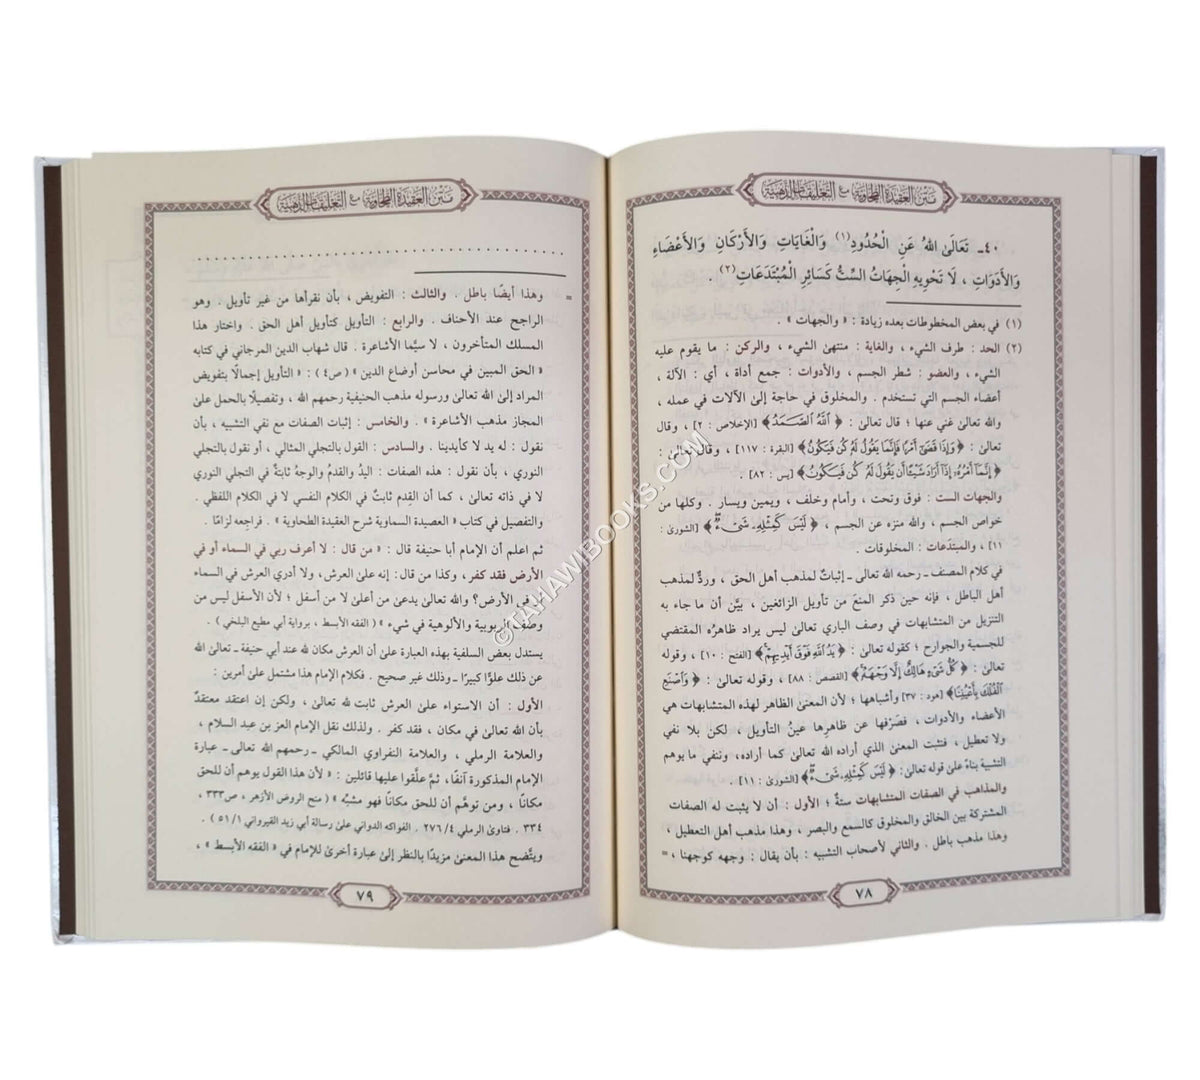 متن العقيدة الطحاوية مع التعليقات الذهبية
٤٠ـ تَعَالَىٰ اللهُ عَنِ الْحُدُودِ(١) وَالْغَايَاتِ وَالْأَرْكَانِ وَالْأَعْضَاءِ
وَالْأَدَوَاتِ ، لَا تَحْوِيهِ الْجِهَاتُ السِّتُّ كَسَائِرِ الْمُبْتَدَعَاتِ(٢) .
(١) في بعض المخطوطات بعده زيادة : « والجهات » .
(٢) الحد : طرف الشيء ، والغاية : منتهىٰ الشيء ، والركن : ما يقوم عليه
الشيء ، والعضو : شطر الجسم ، والأدوات : جمع أداة ، أي : الآلة ،
أعضاء الجسم التي تستخدم . والمخلوق في حاجة إلىٰ الآلات في عمله ،
والله تعالىٰ غني عنها ؛ قال تعالىٰ : ﴿ اللَّهُ الصَّمَدُ ﴾ [الإخلاص : ٢] ، وقال
تعالىٰ : ﴿ وَإِذَا قَضَىٰ أَمْرًا فَإِنَّمَا يَقُولُ لَهُ كُن فَيَكُونُ ﴾ [البقرة : ١١٧] ، وقال تعالىٰ :
﴿ إِنَّمَا أَمْرُهُ إِذَا أَرَادَ شَيْئًا أَن يَقُولَ لَهُ كُن فَيَكُونُ ﴾ [يس : ٨٢] .
والجهات الست : فوق وتحت ، وأمام وخلف ، ويمين ويسار . وكلها من
خواص الجسم ، والله منزه عن الجسم ، ﴿ لَيْسَ كَمِثْلِهِ شَيْءٌ ﴾ [الشورىٰ :
١١] ، والمبتدَعات : المخلوقات .
في كلام المصنف ـ رحمه الله تعالىٰ ـ إثباتٌ لمذهب أهل الحق ، وردٌّ لمذهب
أهل الباطل ، فإنه حين ذكر المنعَ من تأويل الزائغين ، بيَّن أن ما جاء به
التنزيل من المتشابهات في وصف الباري تعالىٰ ليس يراد ظاهرُه المقتضي
للجسمية والجوارح ؛ كقوله تعالىٰ : ﴿ يَدُ اللَّهِ فَوْقَ أَيْدِيهِمْ ﴾ [الفتح : ١٠] ، وقوله
تعالىٰ : ﴿ كُلُّ شَيْءٍ هَالِكٌ إِلَّا وَجْهَهُ ﴾ [القصص : ٨٨] ، وقوله تعالىٰ : ﴿ وَاصْنَعِ
الْفُلْكَ بِأَعْيُنِنَا ﴾ [هود : ٣٧] وأشباهها ؛ لأن المعنىٰ الظاهر لهذه المتشابهات هي
الأعضاء والأدوات ، فصَرْفها عن ظاهرها عينُ التأويل ، لكن بلا نفي
ولا تعطيل ، فنثبت المعنىٰ الذي أراده الله تعالىٰ كما أراده، وننفي ما يوهم
التشبية بناءً علىٰ قوله تعالىٰ : ﴿ لَيْسَ كَمِثْلِهِ شَيْءٌ ﴾ [الشورىٰ : ١١] .
والمذاهب في الصفات المتشابهات ستةٌ ؛ الأول : أن لا يثبت له الصفات
المشتركة بين الخالق والمخلوق كالسمع والبصر ، وهذا مذهب أهل التعطيل ،
وهذا مذهب باطل . والثاني لأصحاب التشبيه : بأن يقال : وجهه كوجهنا ، =
٧٨
متن العقيدة الطحاوية مع التعليقات الذهبية
= وهذا أيضًا باطل . والثالث : التفويض ، بأن نقرأها من غير تأويل . وهو
الراجح عند الأحناف . والرابع : التأويل كتأويل أهل الحق . واختار هذا
المسلك المتأخرون ، لا سيَّما الأشاعرة . قال شهاب الدين المرجاني في كتابه
« الحق المبين في محاسن أوضاع الدين » (ص٤) : « التأويل إجمالًا بتفويض
المراد إلىٰ الله تعالىٰ ورسوله مذهب الحنيفية رحمهم الله ، وتفصيلًا بالحمل علىٰ
المجاز مذهب الأشاعرة » . والخامس : إثبات الصفات مع نفي التشبيه ، بأن
نقول : له يد لا كأيدينا . والسادس : القول بالتجلي المثالي ، أو نقول بالتجلي
النوري ، بأن نقول : هذه الصفات : اليدُ والقدمُ والوجهُ ثابتةٌ في التجلي النوري
لا في ذاته تعالىٰ ، كما أن القِدم ثابتٌ في الكلام النفسي لا في الكلام اللفظي .
والتفصيل في كتاب « العصيدة السماوية شرح العقيدة الطحاوية » . فراجعه لزامًا .
ثم اعلم أن الإمام أبا حنيفة قال : « من قال : لا أعرف ربي في السماء أو في
الأرض فقد كفر ، وكذا من قال : إنه علىٰ العرش، ولا أدري العرش في السماء
أو في الأرض؟ والله تعالىٰ يدعىٰ من أعلىٰ لا من أسفل ؛ لأن الأسفل ليس من
وصف الربوبية والألوهية في شيء » ( الفقه الأبسط ، برواية أبي مطيع البلخي ) .
يستدل بعض السلفية بهذه العبارة علىٰ أن العرش مكان لله عند أبي حنيفة ـ تعالىٰ الله
عن ذلك علوًّا كبيرًا ـ وذلك غير صحيح . فكلام الإمام هذا مشتمل علىٰ أمرين :
الأول : أن الاستواء علىٰ العرش ثابت لله تعالىٰ ، ولكن إن اعتقد معتقدٌ
بأن الله تعالىٰ في مكان ، فقد كفر . ولذلك نقل الإمام العز بن عبد السلام ،
والعلامة الرملي ، والعلامة النفراوي المالكي ـ رحمهم الله تعالىٰ ـ عبارة
الإمام المذكورة آنفًا ، ثمَّ علَّقوا عليها قائلين : « لأن هذا القول يوهم أن للحق
مكانًا ، ومن توهَّم أن للحق مكانًا فهو مشبِّه » ( منح الروض الأزهر ، ص٣٣٣ ،
٣٣٤ . فتاوىٰ الرملي ٤/ ٢٧٦ . الفواكه الدواني علىٰ رسالة أبي زيد القيرواني ١/ ٥١ ) .
ويتَّضح هذا المعنىٰ مزيدًا بالنظر إلىٰ عبارة أخرىٰ للإمام في « الفقه الأبسط » ،
٧٩
©TAHAWIBOOKS.COM